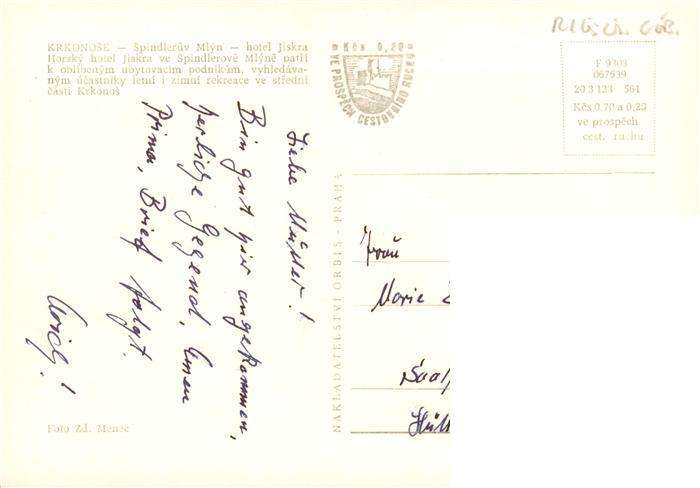 KRKONOŠE — Špindlerův Mlýn — hotel Jiskra
Horský hotel Jiskra ve Špindlerově Mlýně patří
k oblíbeným ubytovacím podnikům, vyhledáva-
ným účastníky letní i zimní rekreace ve střední
části Krkonoš
Kčs 0,20
VE PROSPĚCH CESTOVNÍHO RUCHU
F 9303
067539
20 3 123 561
Kčs 0,70 a 0,20
ve prospěch
cest. ruchu
Liebe Mutter!
Bin gut hier angekommen,
herliche Gegend, Essen
Prima, Brief folgt.
NAKLADATELSTVÍ ORBIS - PRAHA
Frau
Marie
Saal
Hütt
Foto Zd. Menec